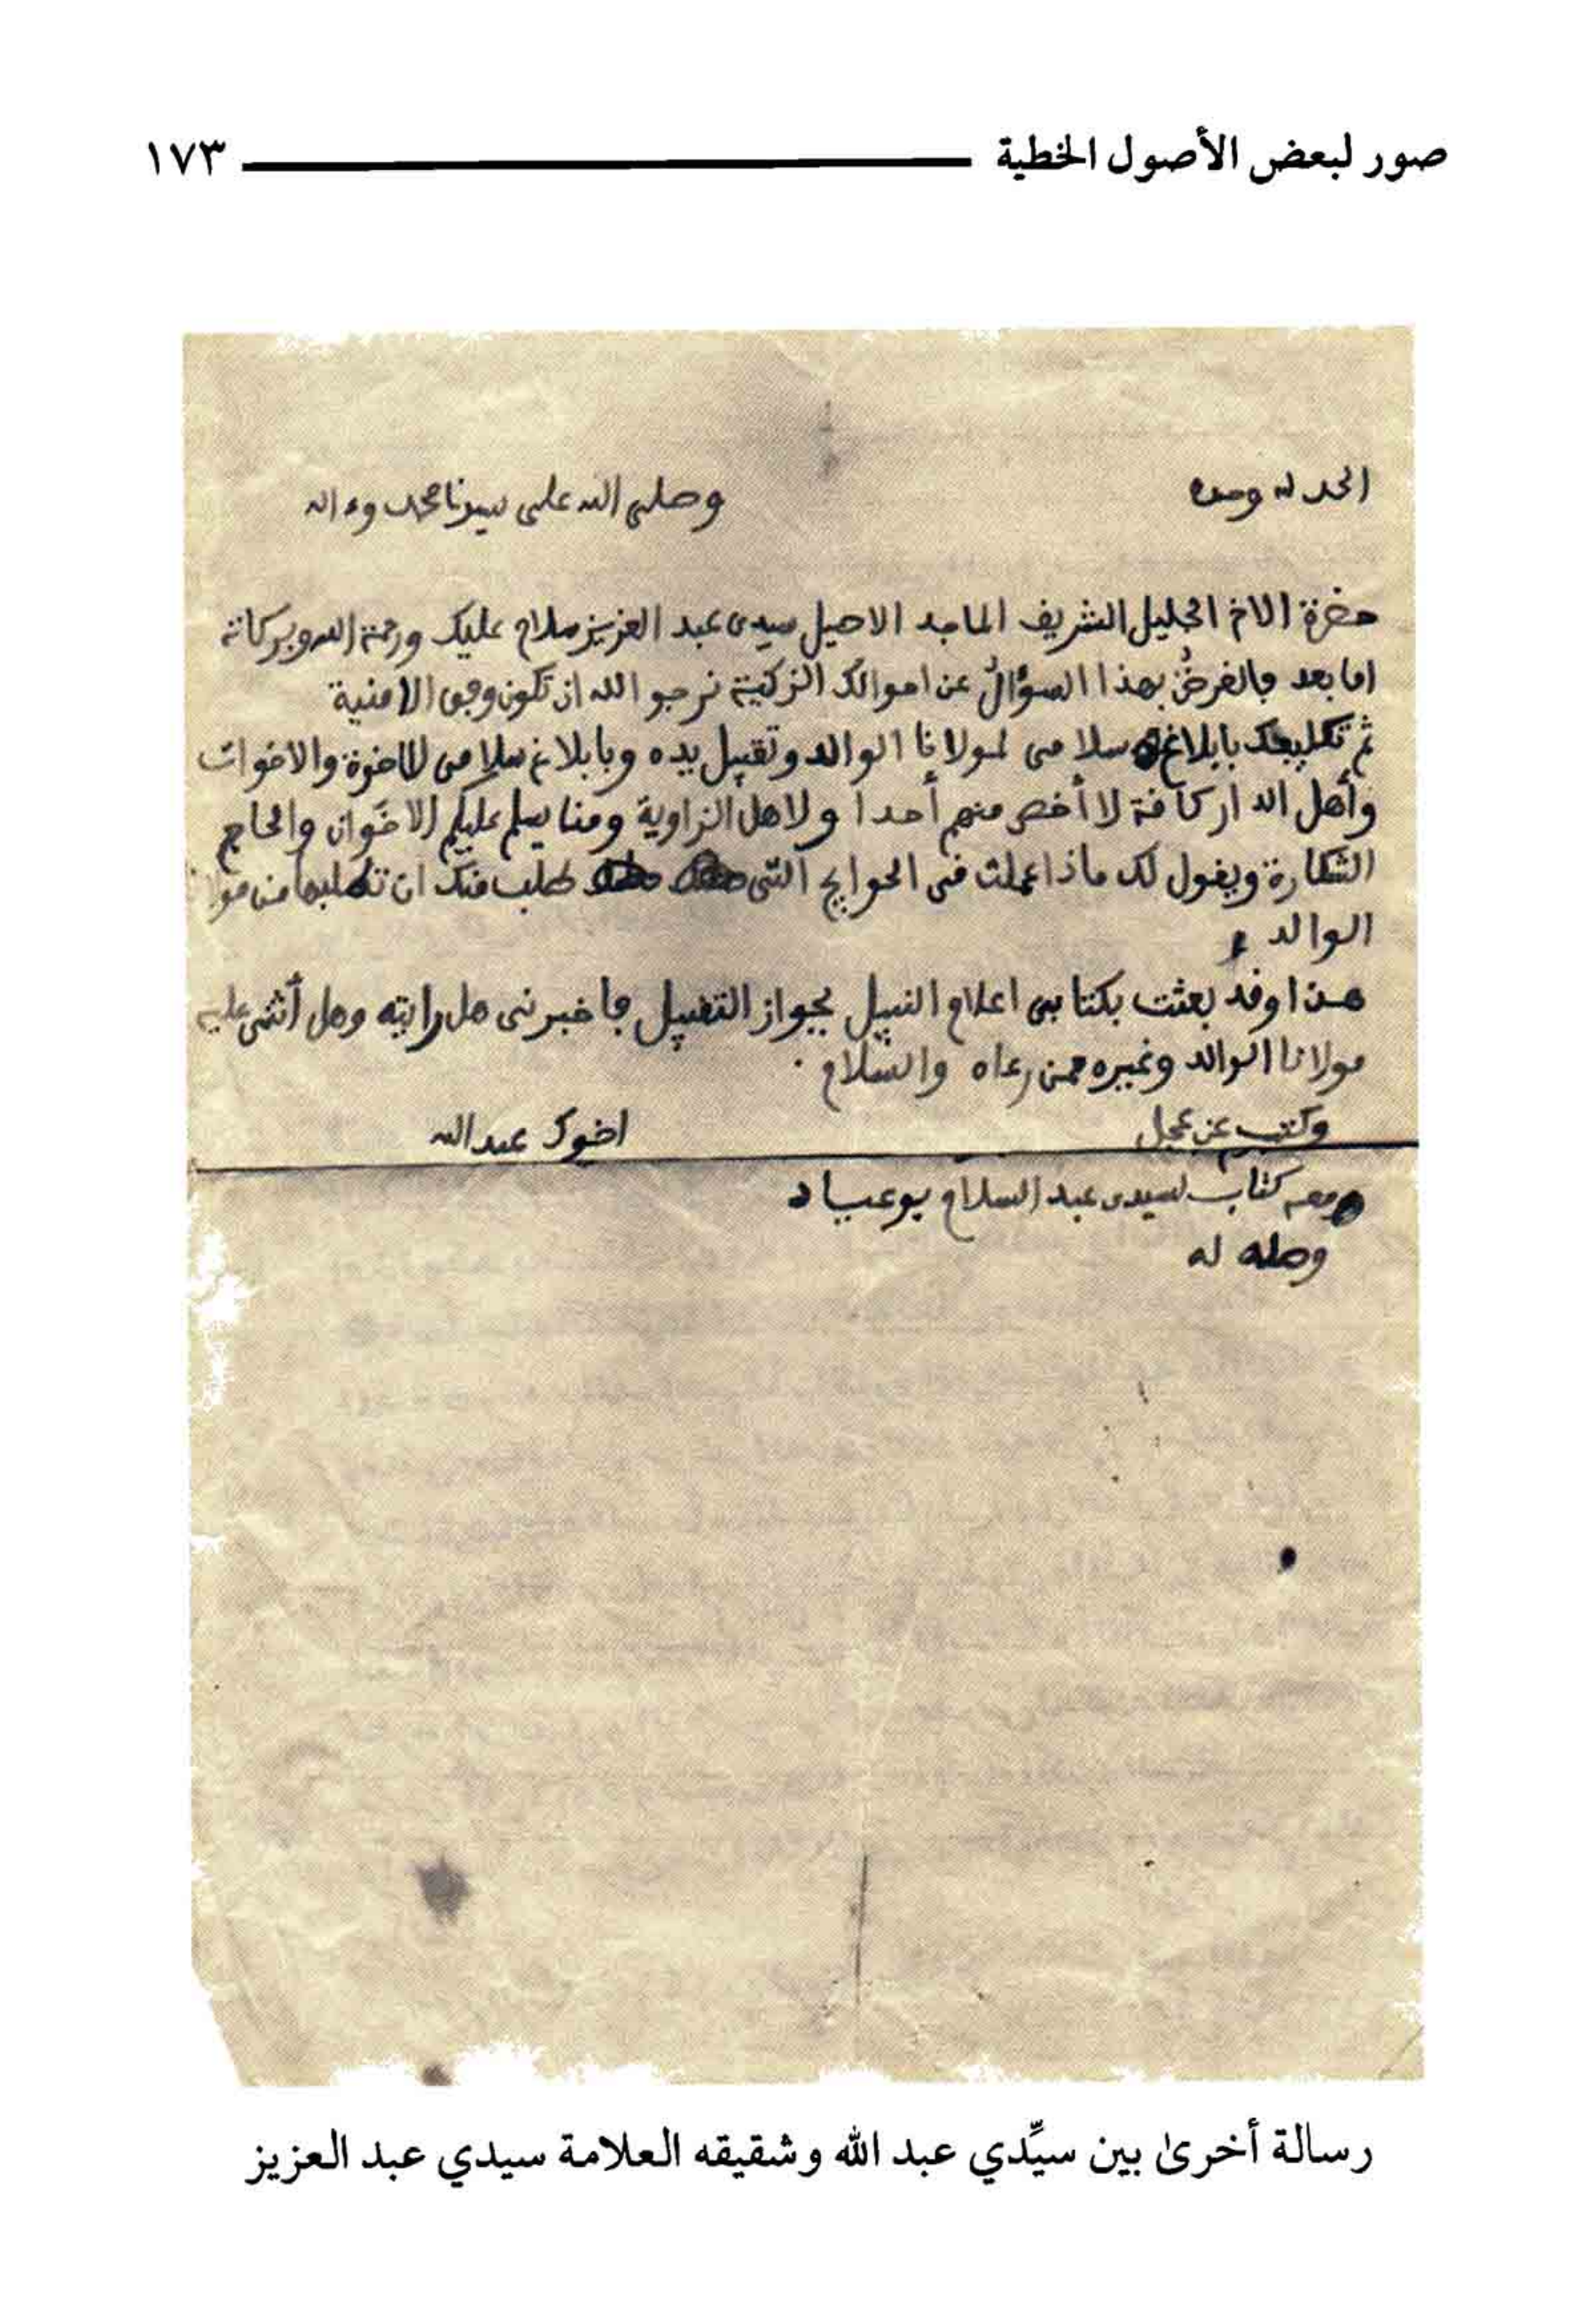 صور لبعض الأصول الخطية ١٧٣
الحمد لله وحده وصلى الله على سيدنا محمد وءاله
حضرة الاخ الجليل الشريف الماجد الاصيل سيدى عبد العزيز سلام عليك ورحمة الله وبركاته
اما بعد فالغرض بهذا السؤال عن احوالك الزكية نرجو الله ان تكون وفق الامنية
ثم تكليفك بابلاغ سلامى لمولانا الوالد وتقبيل يده وبابلاغ سلامى للاخوة والاخوات
وأهل الدار كافة لا أخص منهم أحدا ولاهل الزاوية ومنا يسلم عليكم الاخوان والحاج
الشكارة ويقول لك ماذا عملت فى الحوايج التى طلب منك ان تطلبها من
الوالد
هذا وقد بعثت بكتابى اعلام النبيل بجواز التقبيل فاخبرنى هل رايته وهل أثنى عليه
مولانا الوالد وغيره ممن رءاه والسلام .
وكتب عن عجل اخوك عبد الله
ومعه كتاب لسيدى عبد السلام بوعياد
وصله له
رسالة أخرىٰ بين سيِّدي عبد الله وشقيقه العلامة سيدي عبد العزيز